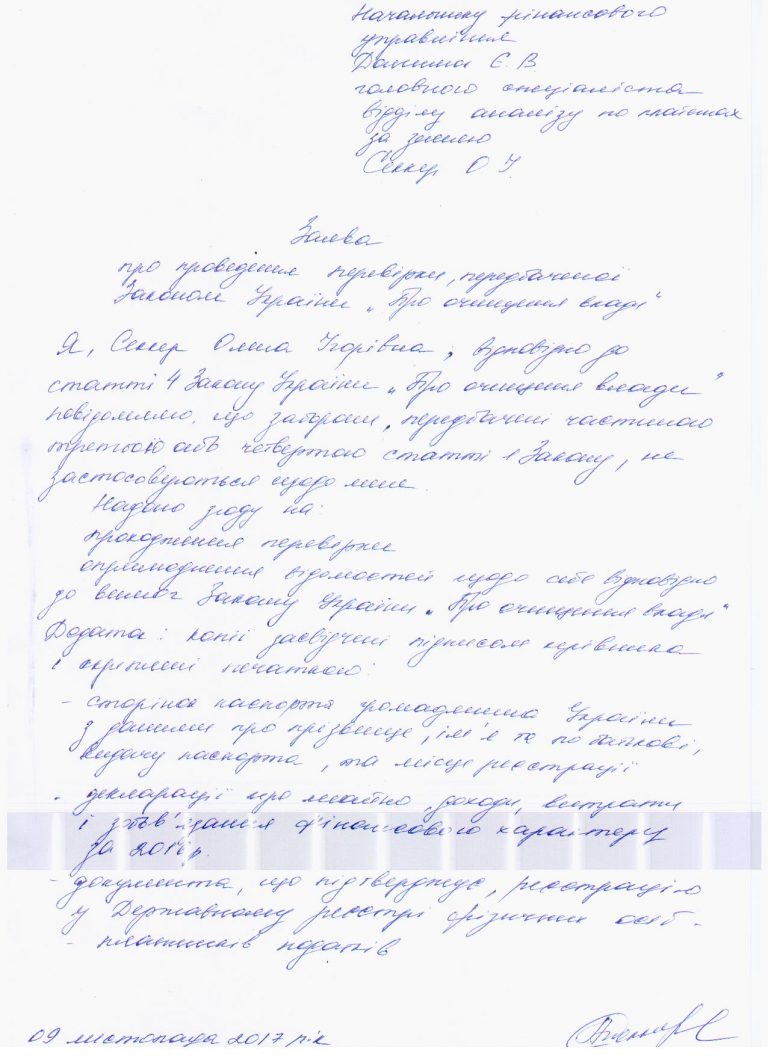 Начальнику фінансового
управління
Даними Є. В
головного спеціаліста
відділу аналізу по платежах
за землю
Секкер О І.
Заява
про проведення перевірки, передбаченої
Законом України „Про очищення влади"
Я, Секкер Олена Ігорівна, відповідно до
статті 4 Закону України „Про очищення влади"
повідомляю, що заборони, передбачені частиною
третьою або четвертою статті 1 Закону, не
застосовуються щодо мене.
Надаю згоду на:
проходження перевірки
оприлюднення відомостей щодо себе відповідно
до вимог Закону України „Про очищення влади"
Додаток: копії засвідчені підписом керівника
і скріплені печаткою:
- сторінок паспорта громадянина України
з даними про прізвище, ім'я та по батькові,
видачу паспорта, та місце реєстрації
- декларації про майно, доходи, витрати
і зобов'язання фінансового характеру
за 2016р.
- документа, що підтверджує, реєстрацію
у Державному реєстрі фізичних осіб -
- платників податків
09 листопада 2017 рік